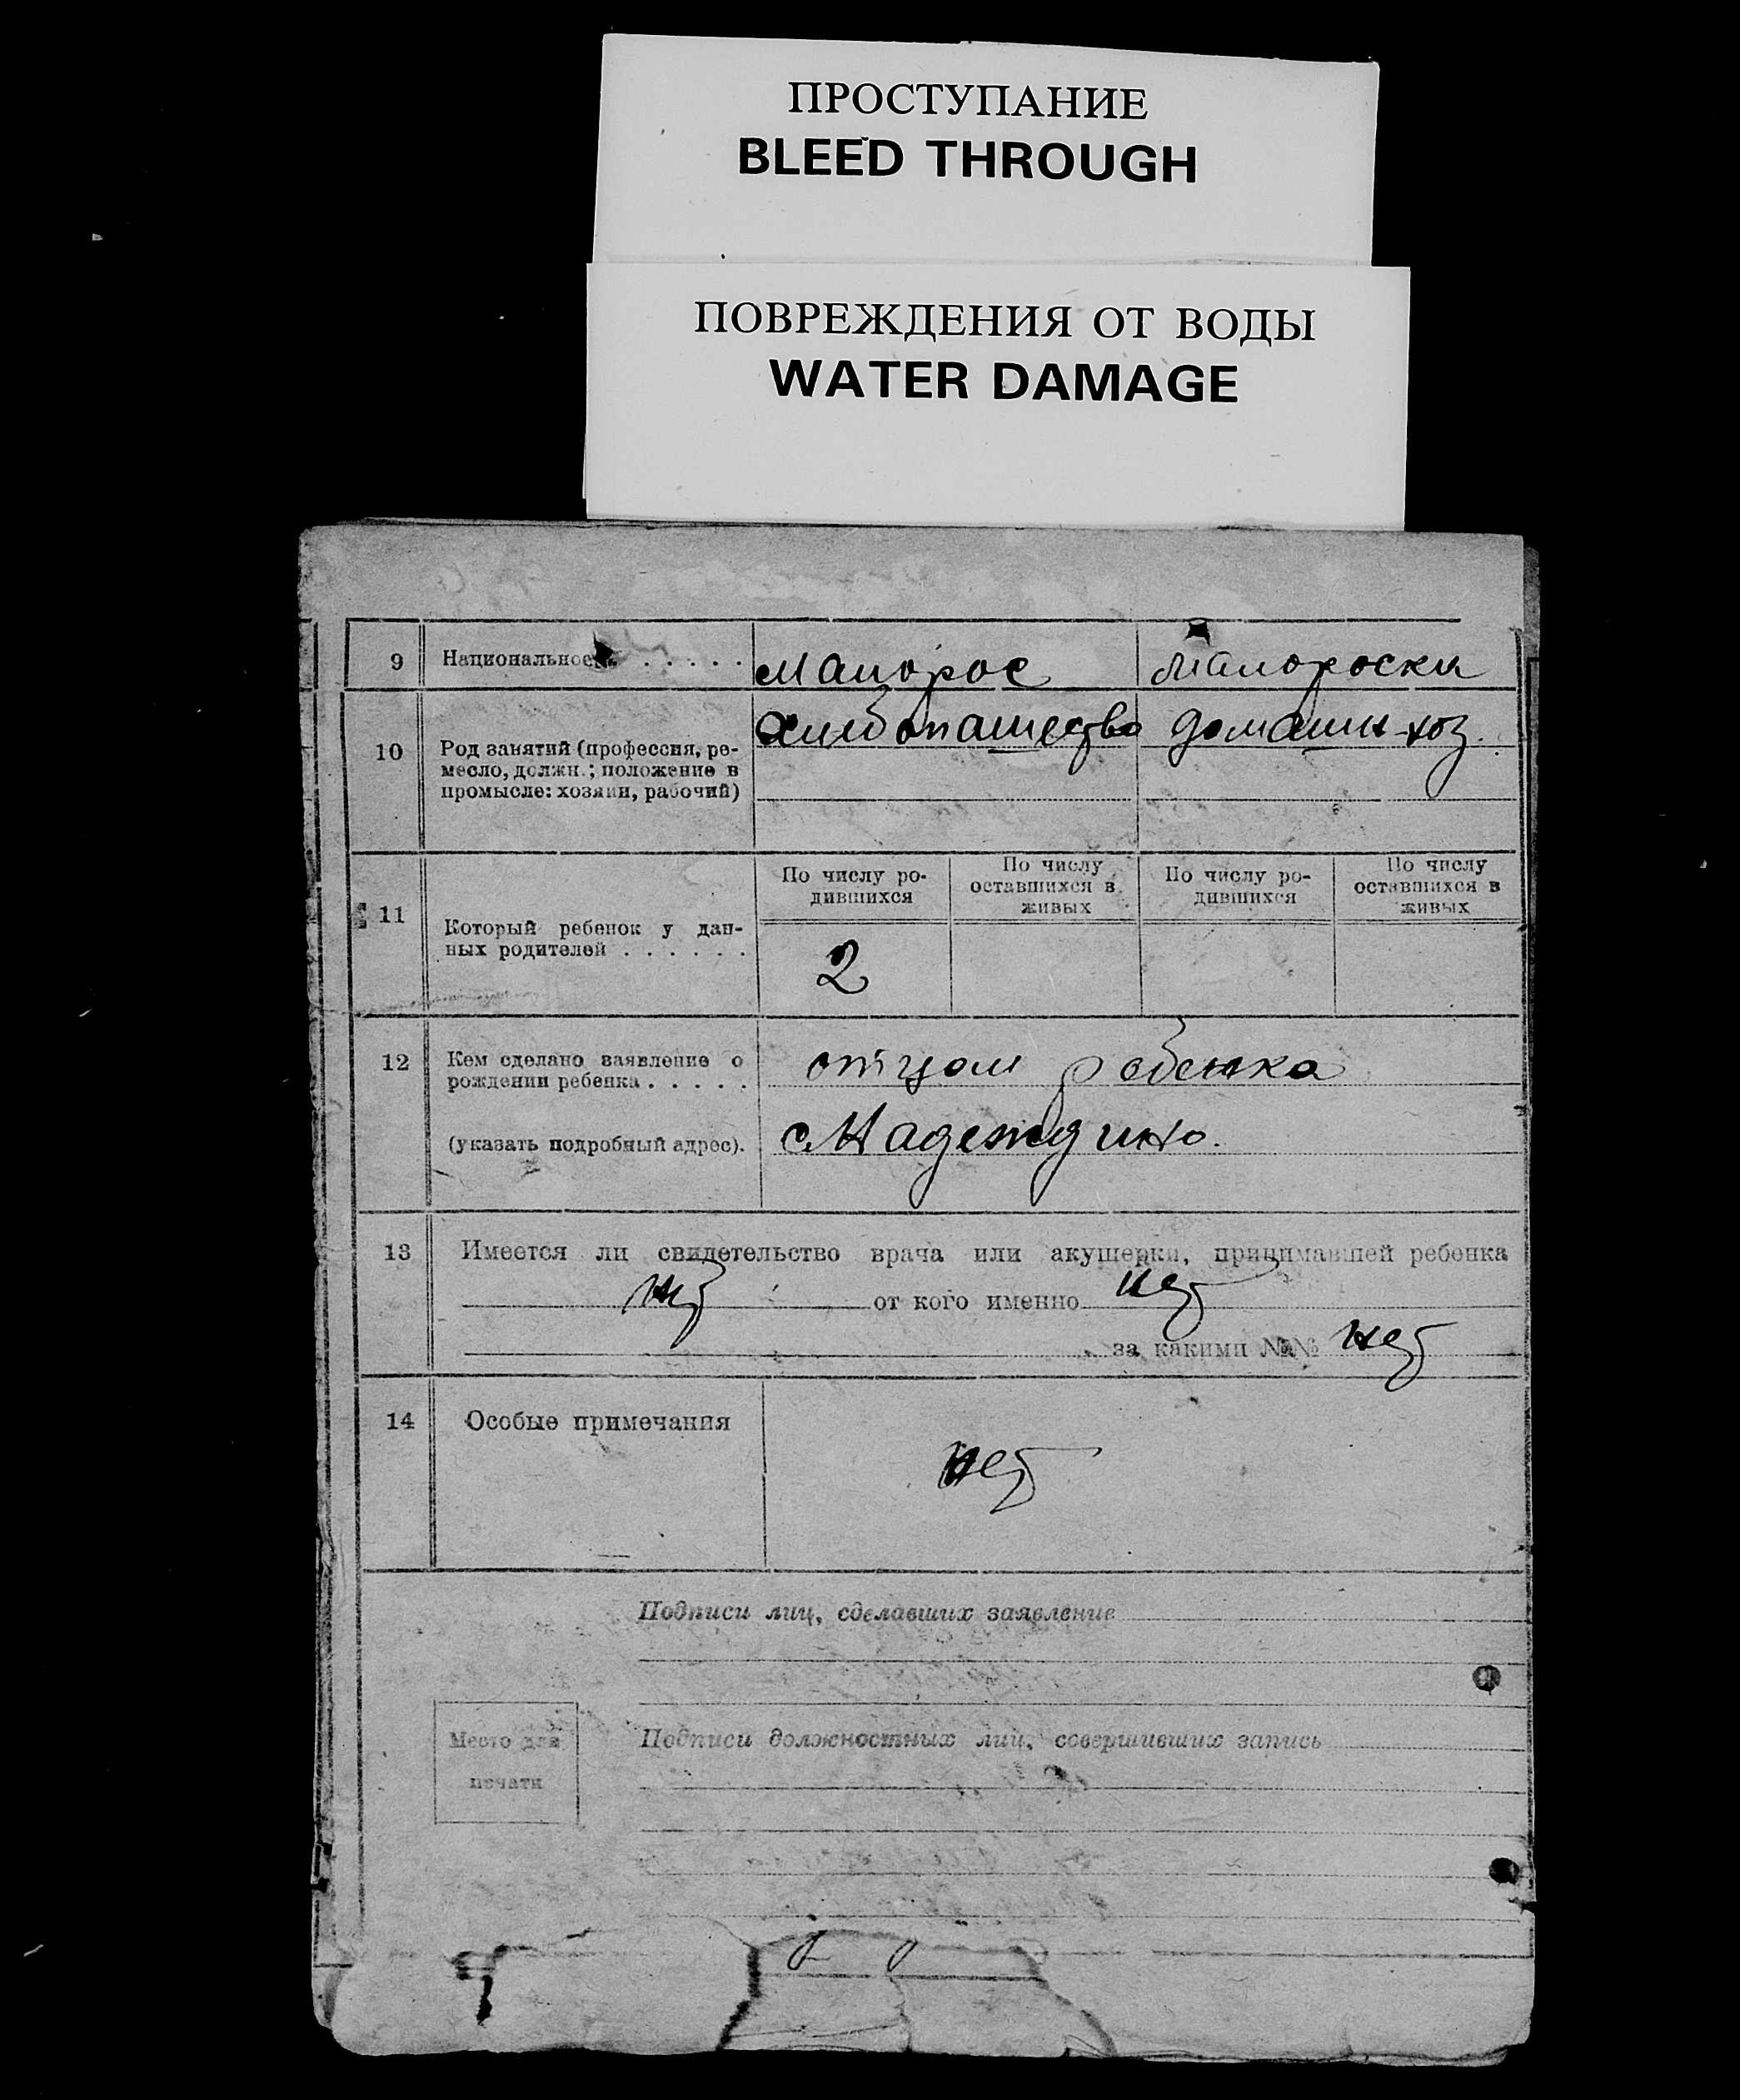 ПРОСТУПАНИЕ
BLEED THROUGH
ПОВРЕЖДЕНИЯ ОТ ВОДЫ
WATER DAMAGE
9 Национальность . . . . . малорос малороски
10 Род занятий (профессия, ре-
месло, должн.; положение в
промысле: хозяин, рабочий)
хлебопашество домашн хоз.
11 Который ребенок у дан-
ных родителей . . . . . .
По числу ро-
дившихся
По числу
оставшихся в
живых
По числу ро-
дившихся
По числу
оставшихся в
живых
2
12 Кем сделано заявление о
рождении ребенка . . . . .
отцом ребенка
(указать подробный адрес). с Надеждино.
13 Имеется ли свидетельство врача или акушерки, принимавшей ребенка
нет от кого именно нет
за какими №№ нет
14 Особые примечания
нет
Подписи лиц, сделавших заявление
Место для
печати
Подписи должностных лиц, совершивших запись